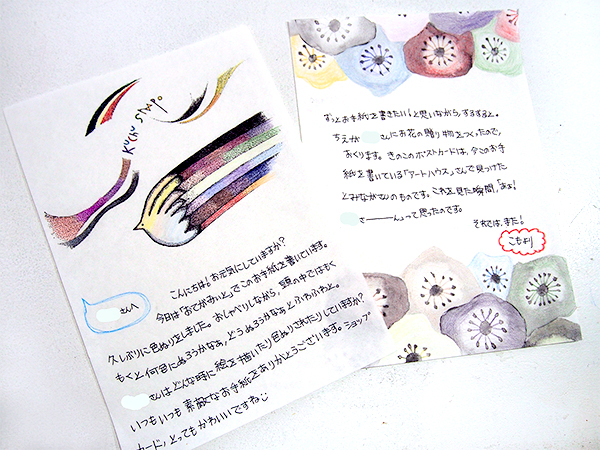 KUCHU STAMP
さんへ
こんにちは! お元気にしていますか?
今日は「おてがみぃと」でこのお手紙を書いています。
久しぶりに色ぬりをしました。おしゃべりしながら、頭の中ではもく
もくと何色にぬろうかなぁ、どうぬろうかなぁとふわふわと。
さんはどんな時に絵を描いたり色ぬりされたりしていますか?
いつもいつも素敵なお手紙をありがとうございます。ショップ
カード、とってもかわいいですね
ずっとお手紙を書きたい!と思いながら、するすると。
ちえか さんにお花の贈り物をつくったので、
おくります。きのこのポストカードは、今このお手
紙を書いている「アートハウス」さんで見つけた
とみながさんのものです。これを見た瞬間、「あぁ!
さーーーん」って思ったのです。
それでは、また!
こもより